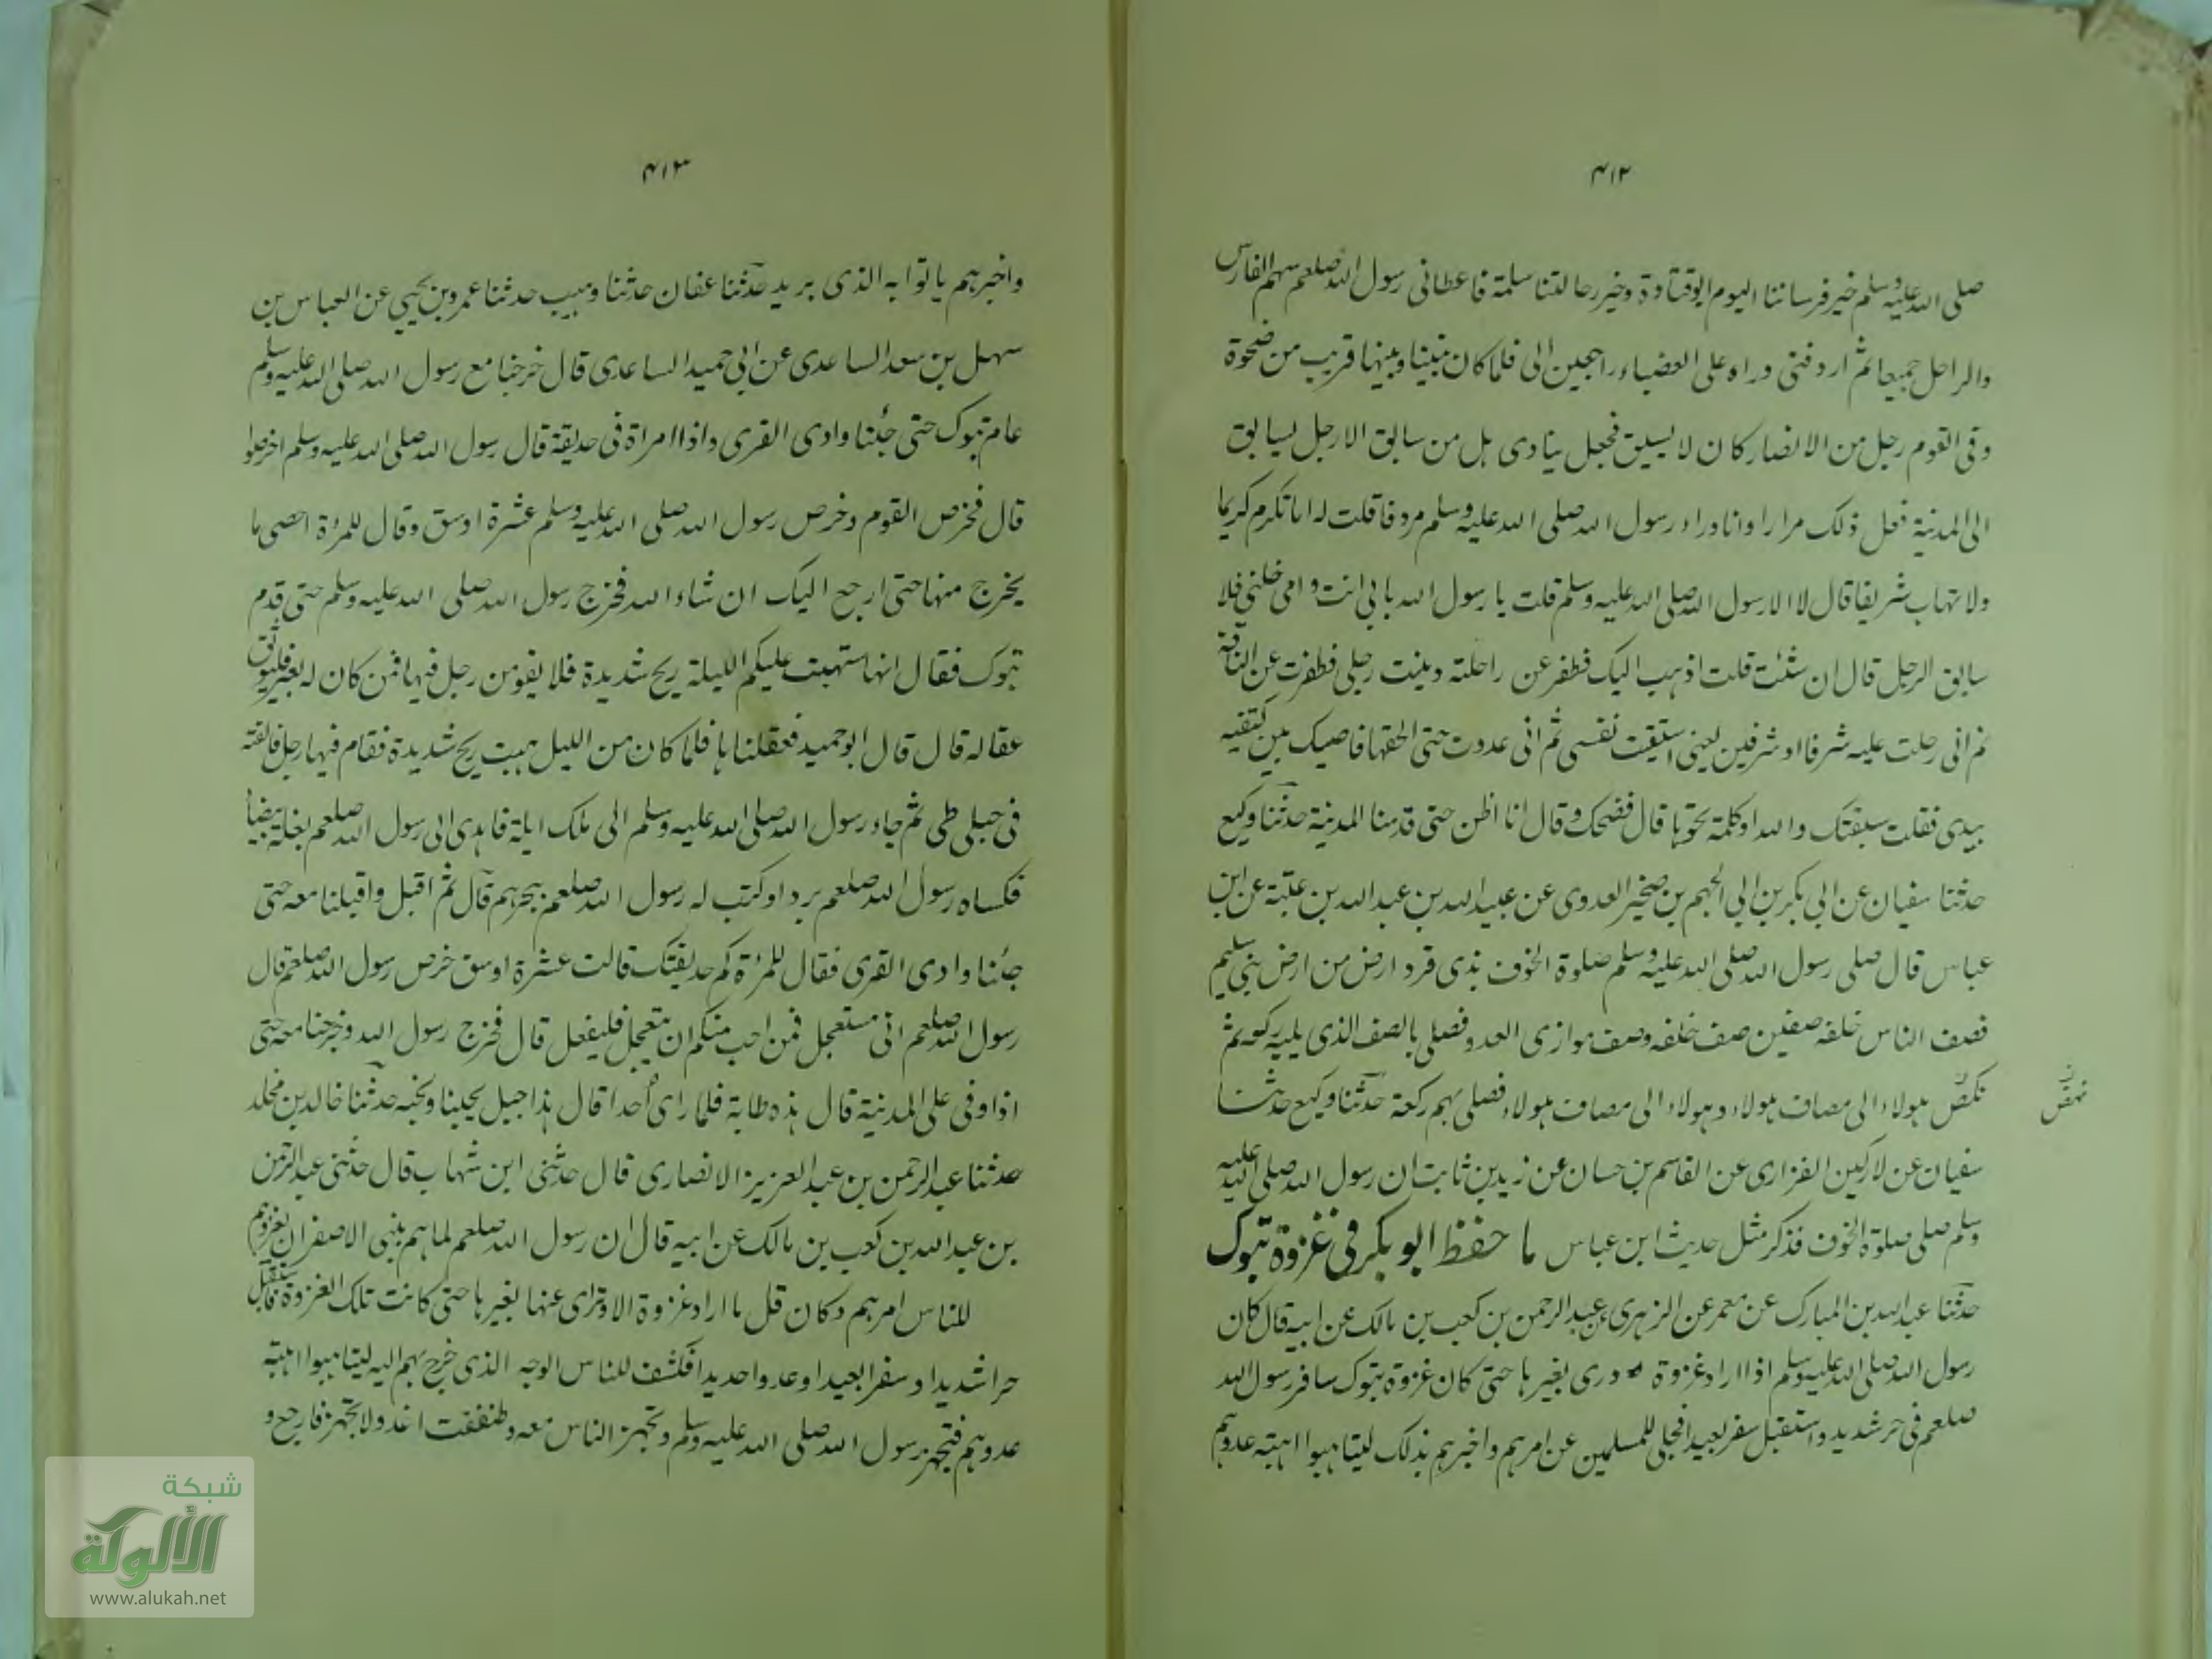 ۴۱۲
صلى الله عليه وسلم خير فرساننا اليوم ابو قتادة وخير رجالتنا سلمة فاعطانى رسول الله صلعم سهم الفارس
والراجل جميعا ثم اردفنى وراه على العضباء راجعين الى فلما كان بيننا وبينها قريب من ضحوة
وفى القوم رجل من الانصار كان لا يسبق فجعل ينادى هل من سابق الا رجل يسابق
الى المدينة فعل ذلك مرارا وانا وراء رسول الله صلى الله عليه وسلم مردفا قلت له اما تكرم كريما
ولا تهاب شريفا قال لا الا رسول الله صلى الله عليه وسلم قلت يا رسول الله بابى انت وامى خلنى فلا
سابق الرجل قال ان شئت قلت اذهب اليك فطفر عن راحلته وثنيت رجلى فطفرت عن الناقة
ثم انى ربطت عليه شرفا او شرفين يعنى استبقيت نفسى ثم انى عدوت حتى الحقها فاصك بين كتفيه
بيدى فقلت سبقتك والله او كلمة نحوها قال فضحك وقال انا اظن حتى قدمنا المدينة حدثنا وكيع
حدثنا سفيان عن ابى بكر بن ابى الجهم بن صخير العدوى عن عبيد الله بن عبد الله بن عتبة عن ابن
عباس قال صلى رسول الله صلى الله عليه وسلم صلوة الخوف بذى قرد ارض من ارض بنى سليم
فصف الناس خلفه صفين صف خلفه وصف موازى العدو فصلى بالصف الذى يليه ركعة ثم
نكص هولاء الى مصاف هولاء وهولاء الى مصاف هولاء فصلى بهم ركعة حدثنا وكيع حدثنا
نهض
سفيان عن لاركين الفزارى عن القاسم بن حسان عن زيد بن ثابت ان رسول الله صلى الله عليه
وسلم صلى صلوة الخوف فذكر مثل حديث ابن عباس ما حفظ ابو بكر فى غزوة تبوك
حدثنا عبد الله بن المبارك عن معمر عن الزهرى عن عبد الرحمن بن كعب بن مالك عن ابيه قال كان
رسول الله صلى الله عليه وسلم اذا اراد غزوة ورى بغيرها حتى كان غزوة تبوك سافر رسول الله
صلعم فى حر شديد واستقبل سفر بعيدا فجلى للمسلمين عن امرهم واخبرهم بذلك ليتاهبوا اهبة عدوهم
۴۱۳
واخبرهم بالوابه الذى يريد حدثنا عفان حدثنا وهيب حدثنا عمرو بن يحيى عن العباس بن
سهل بن سعد الساعدى عن ابى حميد الساعدى قال خرجنا مع رسول الله صلى الله عليه وسلم
عام تبوك حتى جئنا وادى القرى واذا امراة فى حديقة قال رسول الله صلى الله عليه وسلم اخرصوا
قال فخرص القوم وخرص رسول الله صلى الله عليه وسلم عشرة اوسق وقال للمرءة احصى ما
يخرج منها حتى ارجع اليك ان شاء الله فخرج رسول الله صلى الله عليه وسلم حتى قدم
تبوك فقال انها ستهبت عليكم الليلة ريح شديدة فلا يقومن رجل فيها فمن كان له بعير فليوثق
عقاله قال قال ابو حميد فعقلناها فلما كان من الليل هبت ريح شديدة فقام فيها رجل فالقته
فى جبلى طى ثم جاء رسول الله صلى الله عليه وسلم الى ملك ايلة فاهدى الى رسول الله صلعم بغلة بيضا
فكساه رسول الله صلعم بردا وكتب له رسول الله صلعم ببحرهم قال ثم اقبل واقبلنا معه حتى
جئنا وادى القرى فقال للمرءة كم حديقتك قالت عشرة اوسق خرص رسول الله صلعم قال
رسول الله صلعم انى مستعجل فمن احب منكم ان يتعجل فليفعل قال فخرج رسول الله وخرجنا معه حتى
اذا اوفى على المدينة قال هذه طابة فلما راى أحدا قال هذا جبل يحبنا ونحبه حدثنا خالد بن مخلد
حدثنا عبد الرحمن بن عبد العزيز الانصارى قال حدثنى ابن شهاب قال حدثنى عبد الرحمن
بن عبد الله بن كعب بن مالك عن ابيه قال ان رسول الله صلعم لما هم ببنى الاصفر ان يغزوهم
للناس امرهم وكان قل ما اراد غزوة الا وراى عنها بغيرها حتى كانت تلك الغزوة فاستقبل
حرا شديدا وسفرا بعيدا وعدوا حديدا فكشف للناس الوجه الذى خرج بهم اليه ليتاهبوا اهبة
عدوهم فتجهز رسول الله صلى الله عليه وسلم وتجهز الناس معه وطنفقت اغدو لا تجهز فارجع و
شبكة
الألوكة
www.alukah.net